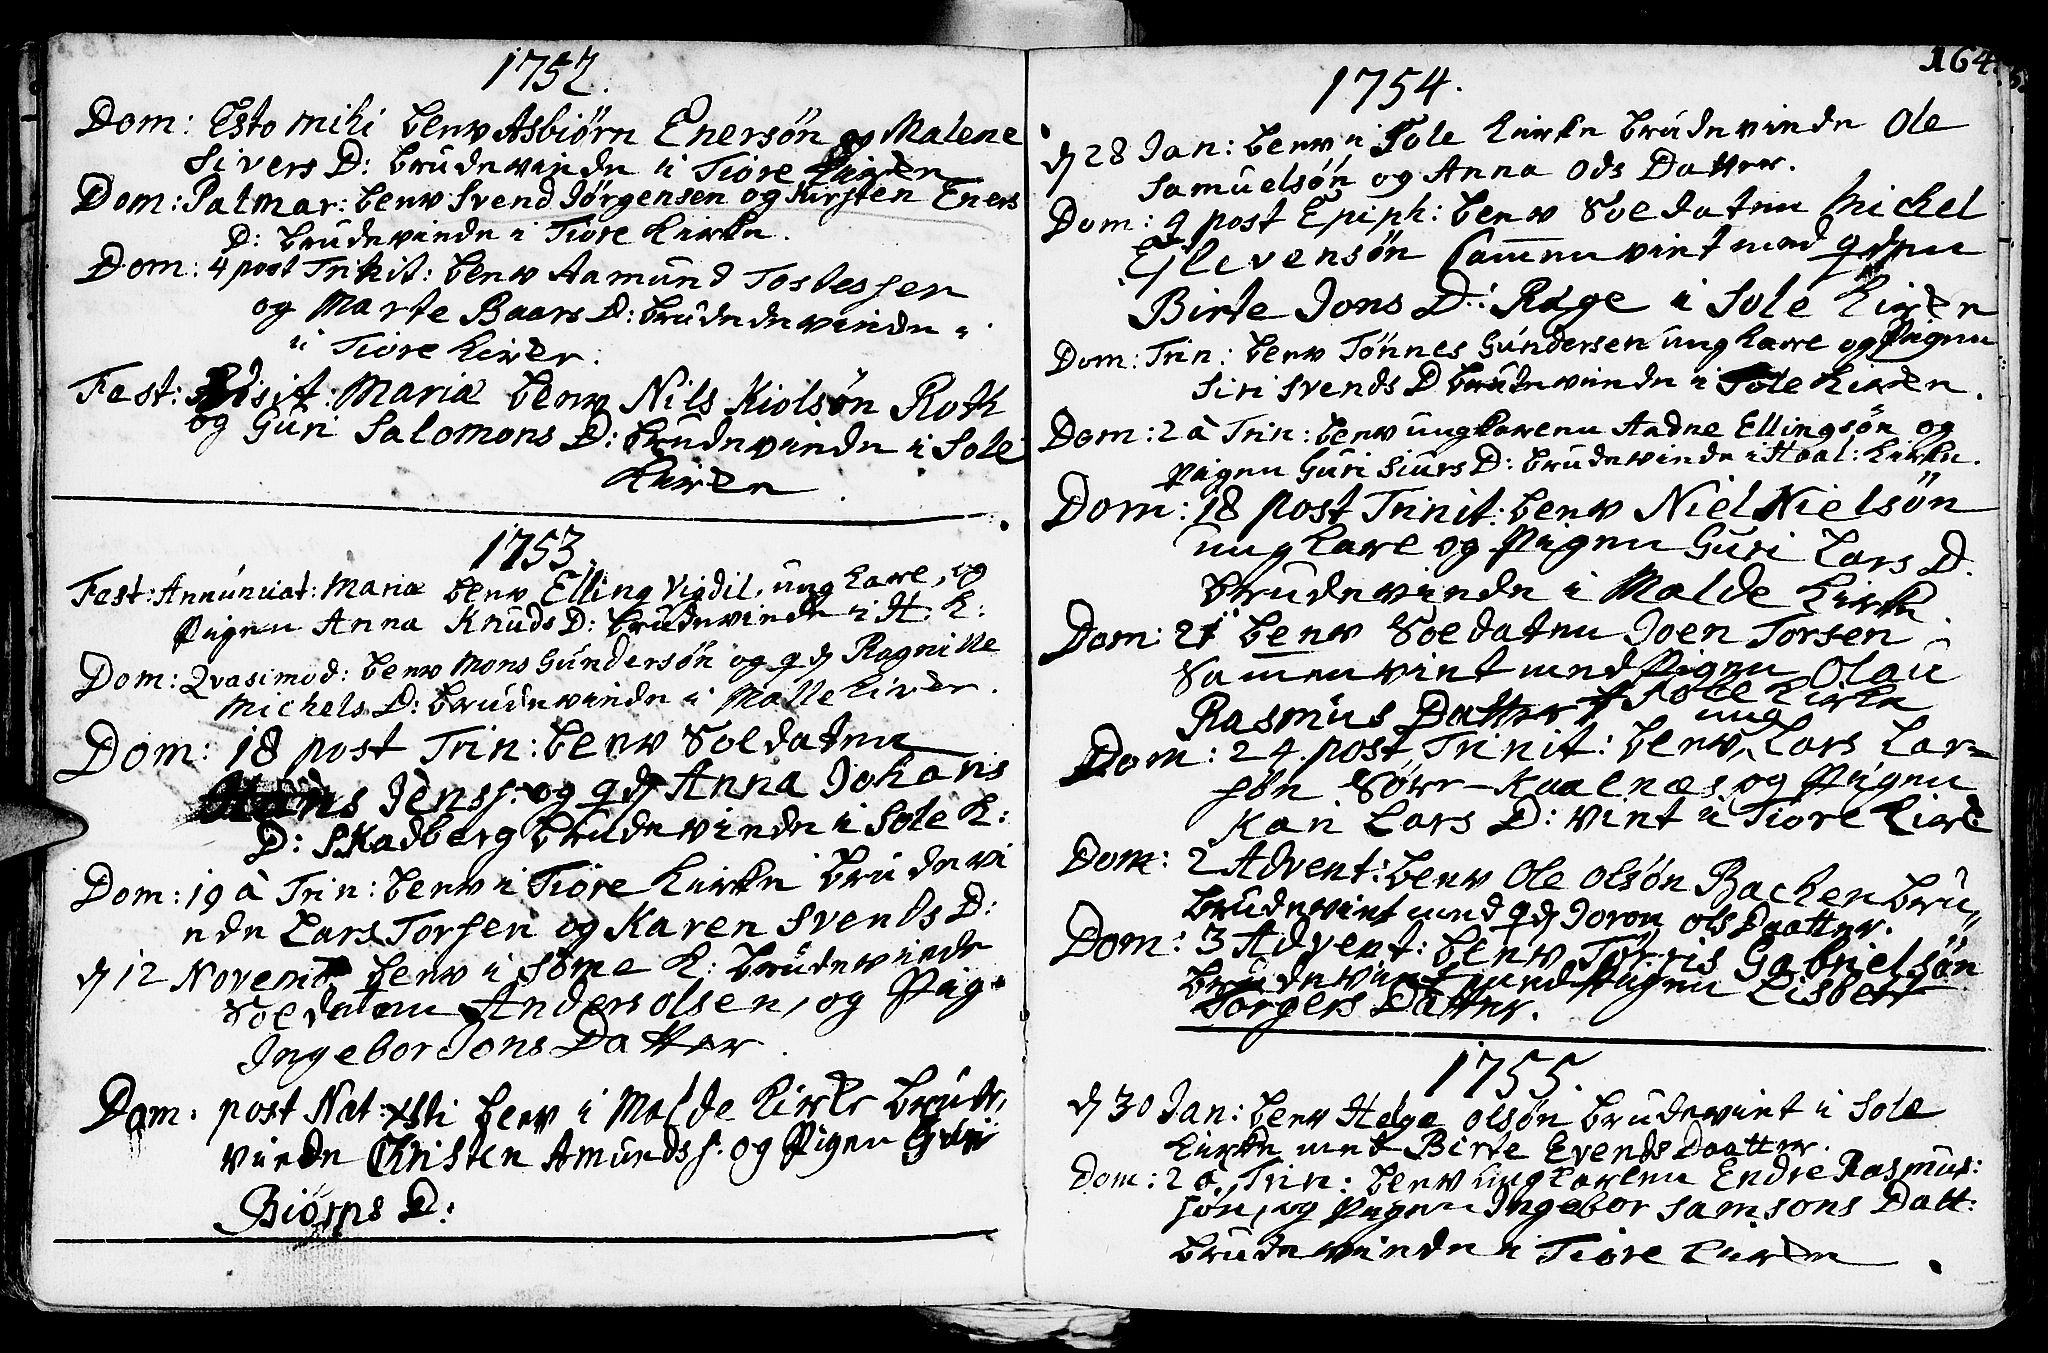 1752.
Dom: Esto mihi blew Asbiörn Enersön og Malene
Sivers D: brudeviede i Tiore Kirken
Dom: Palmar: blew Svend Jörgensen og Kirsten Eners
D: brudeviede i Tiore Kirke.
Dom: 4 post Trinit: blew Aamund
og Marte Baars D: brudedeviede
i Tiore Kirke.
Fest: Visit: Mariæ blew Nils Kiolsön Roth
og Guri Salomons D: brudeviede i Sole
Kirke
1753.
Fest: Annunciat: Mariæ blew Elling Vigdil, ungkarl, og
Pigen Anna Knuds D: brudeviede i H: K:
Dom: Qvasimod: blew Mons Gundersön og qv: Ragnille
Michels D: brudeviede i Malle Kirke.
Dom: 18 post Trin: blew Soldaten
Hans Jenss: og qv: Anna Johans
D: Skadberg brudeviede i Sole K:
Dom: 19 à Trin: blew i Tiore Kirke brudevi
ede Lars Torsen og Karen Svends D:
d 12 Novemb blew i Some K: brudeviede
Soldaten Anders olsen, og Pig:
Ingebor Jons Datter.
Dom: post Nat: Xsti blew i Malde Kirke brude,
viede Christen Amunds s: og Pigen Guri
Biörns D:
164
1754.
d 28 Jan: blew i Sole Kirke brudeviede Ole
Samuelsön og Anna Ods Datter.
Dom: 4 post Epiph: blew Soldaten Michel
Ejlevensön Sammenviet med qv:
Birte Jons D: Rage i Sole Kirke
Dom: Trin: blew Tönnes Gundersen ungkarl og Pigen
Siri Svends D brudeviede i Sole Kirken.
Dom: 2 à Trin: blew ungkarlen Andne Ellingsön og
Pigen Guri Siurs D: brudeviede i Haal: Kirke.
Dom: 18 post Trinit: blew Niel Nielsön
ungkarl og Pigen Guri Lars D.
brudeviede i Malde Kirke.
Dom: 21 blew Soldaten Joen Torsen
Samenviet med Pigen Olau
Rasmus Datter i Sole Kirke
ung
Dom: 24 post Trinit: blew Lars Lar=
sön Sörr-Kaalnæs og Pigen
Kari Lars D: viet i Tiore Kirke
Dom: 2 Advent: blew Ole Olsön Bachen bru„
brudeviet med qv: Joron ols Daatter.
Dom: 3 Advent: blew Torris Gabrielsön
brudeviet med Pigen Lisbet
Torgers Datter.
1755.
d 30 Jan: blew Helge olsön brudeviet i Sole
Kirke met Birte Evends Daatter.
Dom: 2 à Trin: blew ungkarlen Endre Rasmus:
sön, og Pigen Ingebor Samsons Datt:
brudeviede i Tiore Kirke.